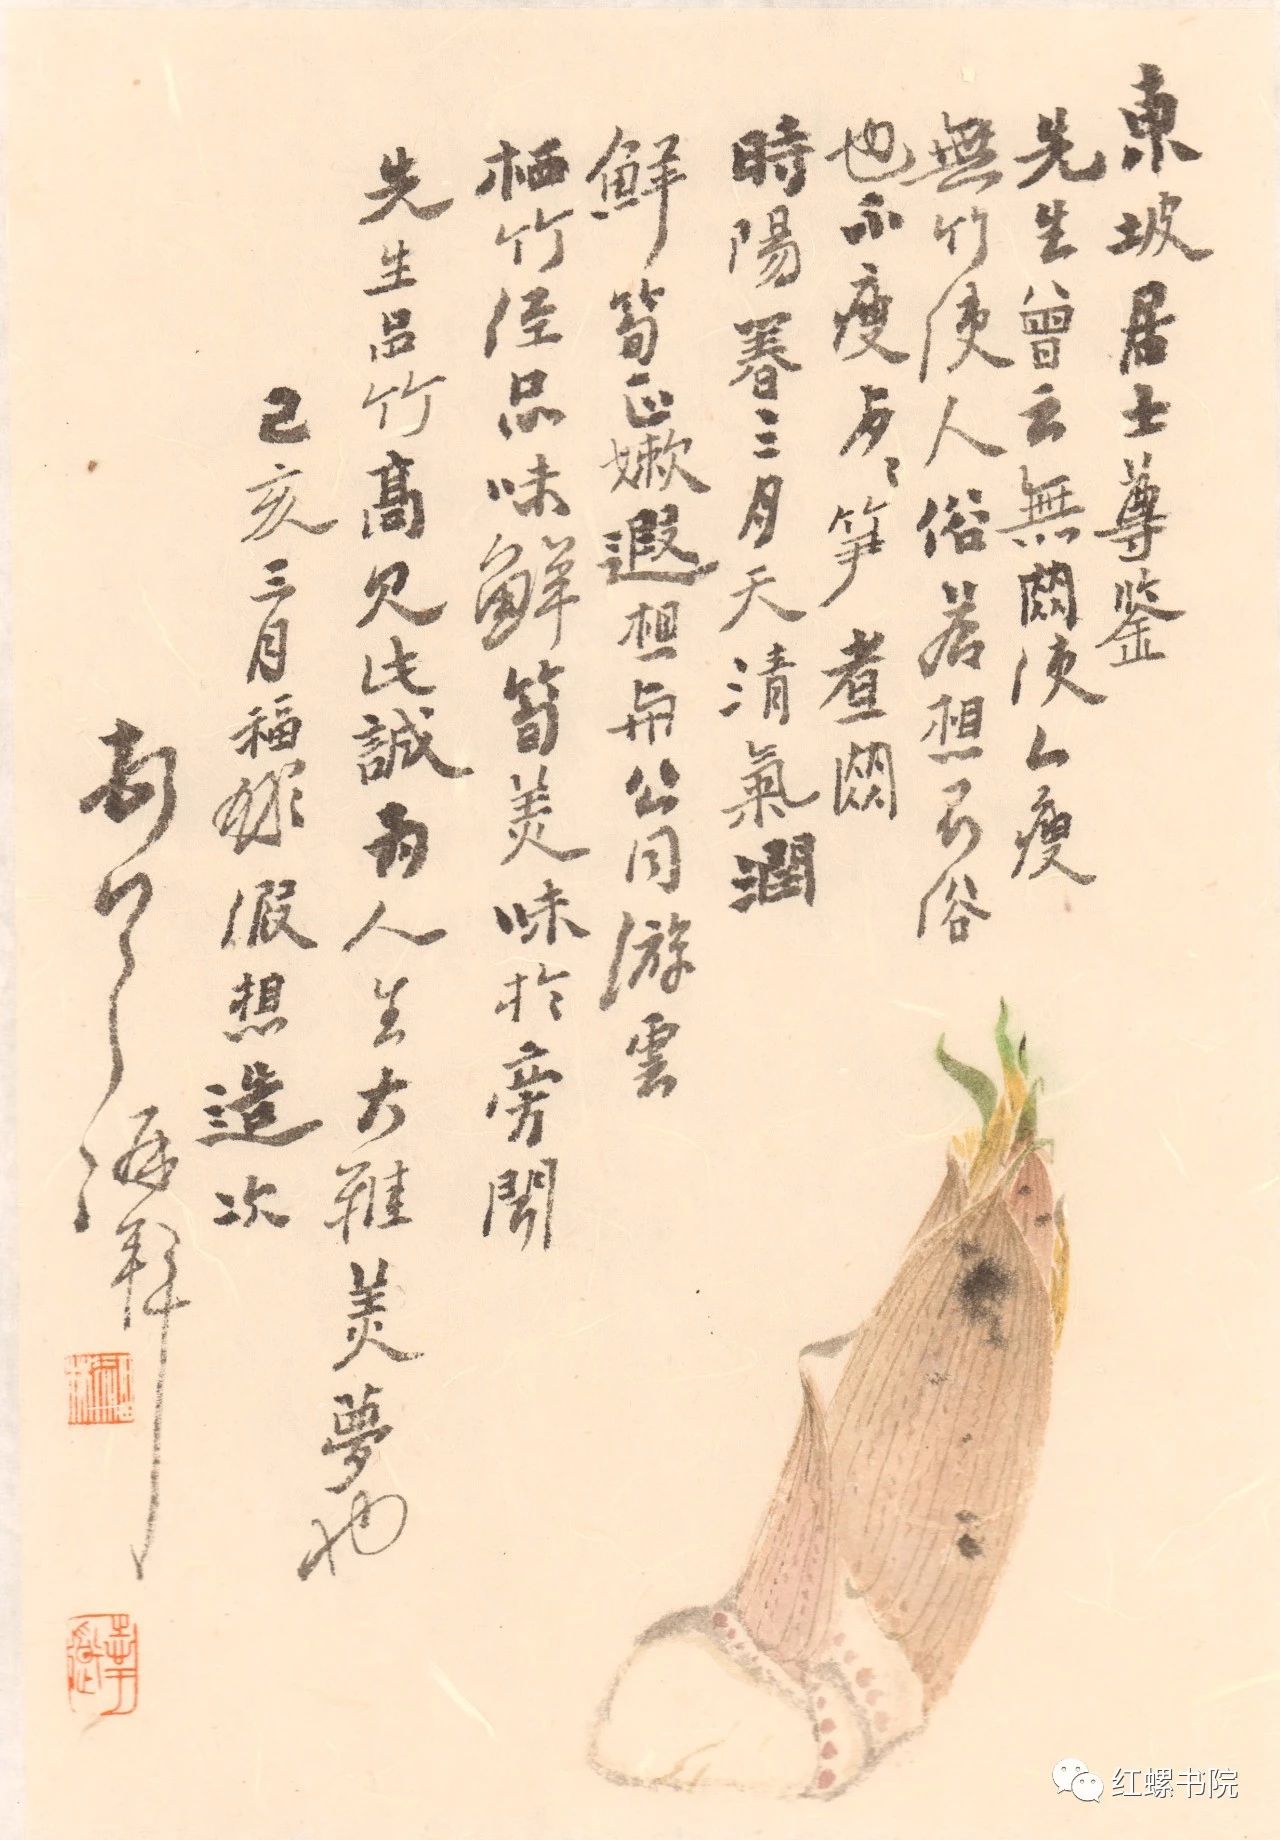 東坡居士尊鉴
先生曾云無閼使人瘦
無竹使人俗若想不俗
也不瘦与〻笋煮閼
時陽春三月天清氣潤
鮮筍正嫩遐想与公同游雲
栖竹径品味鮮筍美味於旁闻
先生品竹高见此誠为人生大雅美夢也
己亥三月福缘假想造次
再拜
红螺书院